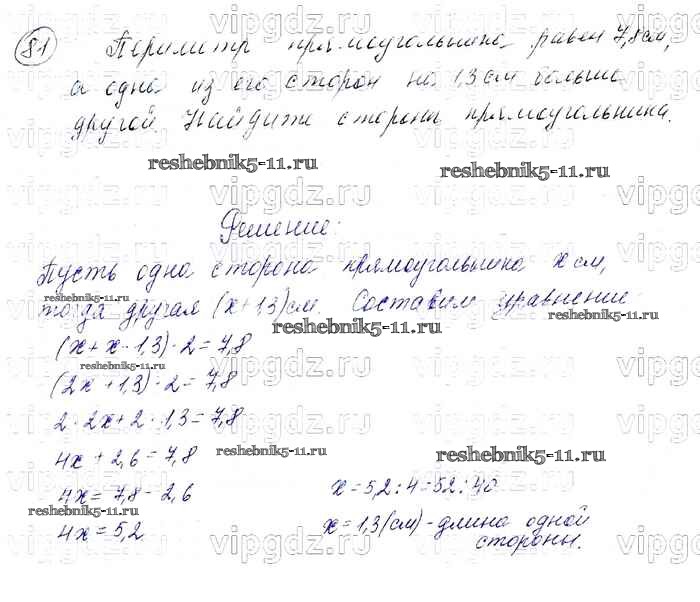 81 Периметр прямоугольника равен 7,8 см,
а одна из его сторон на 1,3 см больше
другой. Найдите стороны прямоугольника.
reshebnik5-11.ru reshebnik5-11.ru
Решение:
Пусть одна сторона прямоугольника x см,
тогда другая (x+1,3) см. Составим уравнение
reshebnik5-11.ru reshebnik5-11.ru
(x+x+1,3)·2=7,8
reshebnik5-11.ru
(2x+1,3)·2=7,8
2·2x+2·1,3=7,8
4x+2,6=7,8
reshebnik5-11.ru reshebnik5-11.ru
4x=7,8-2,6 x=5,2:4=52:40
reshebnik5-11.ru
4x=5,2 x=1,3(см)-длина одной
стороны.
vipgdz.ru